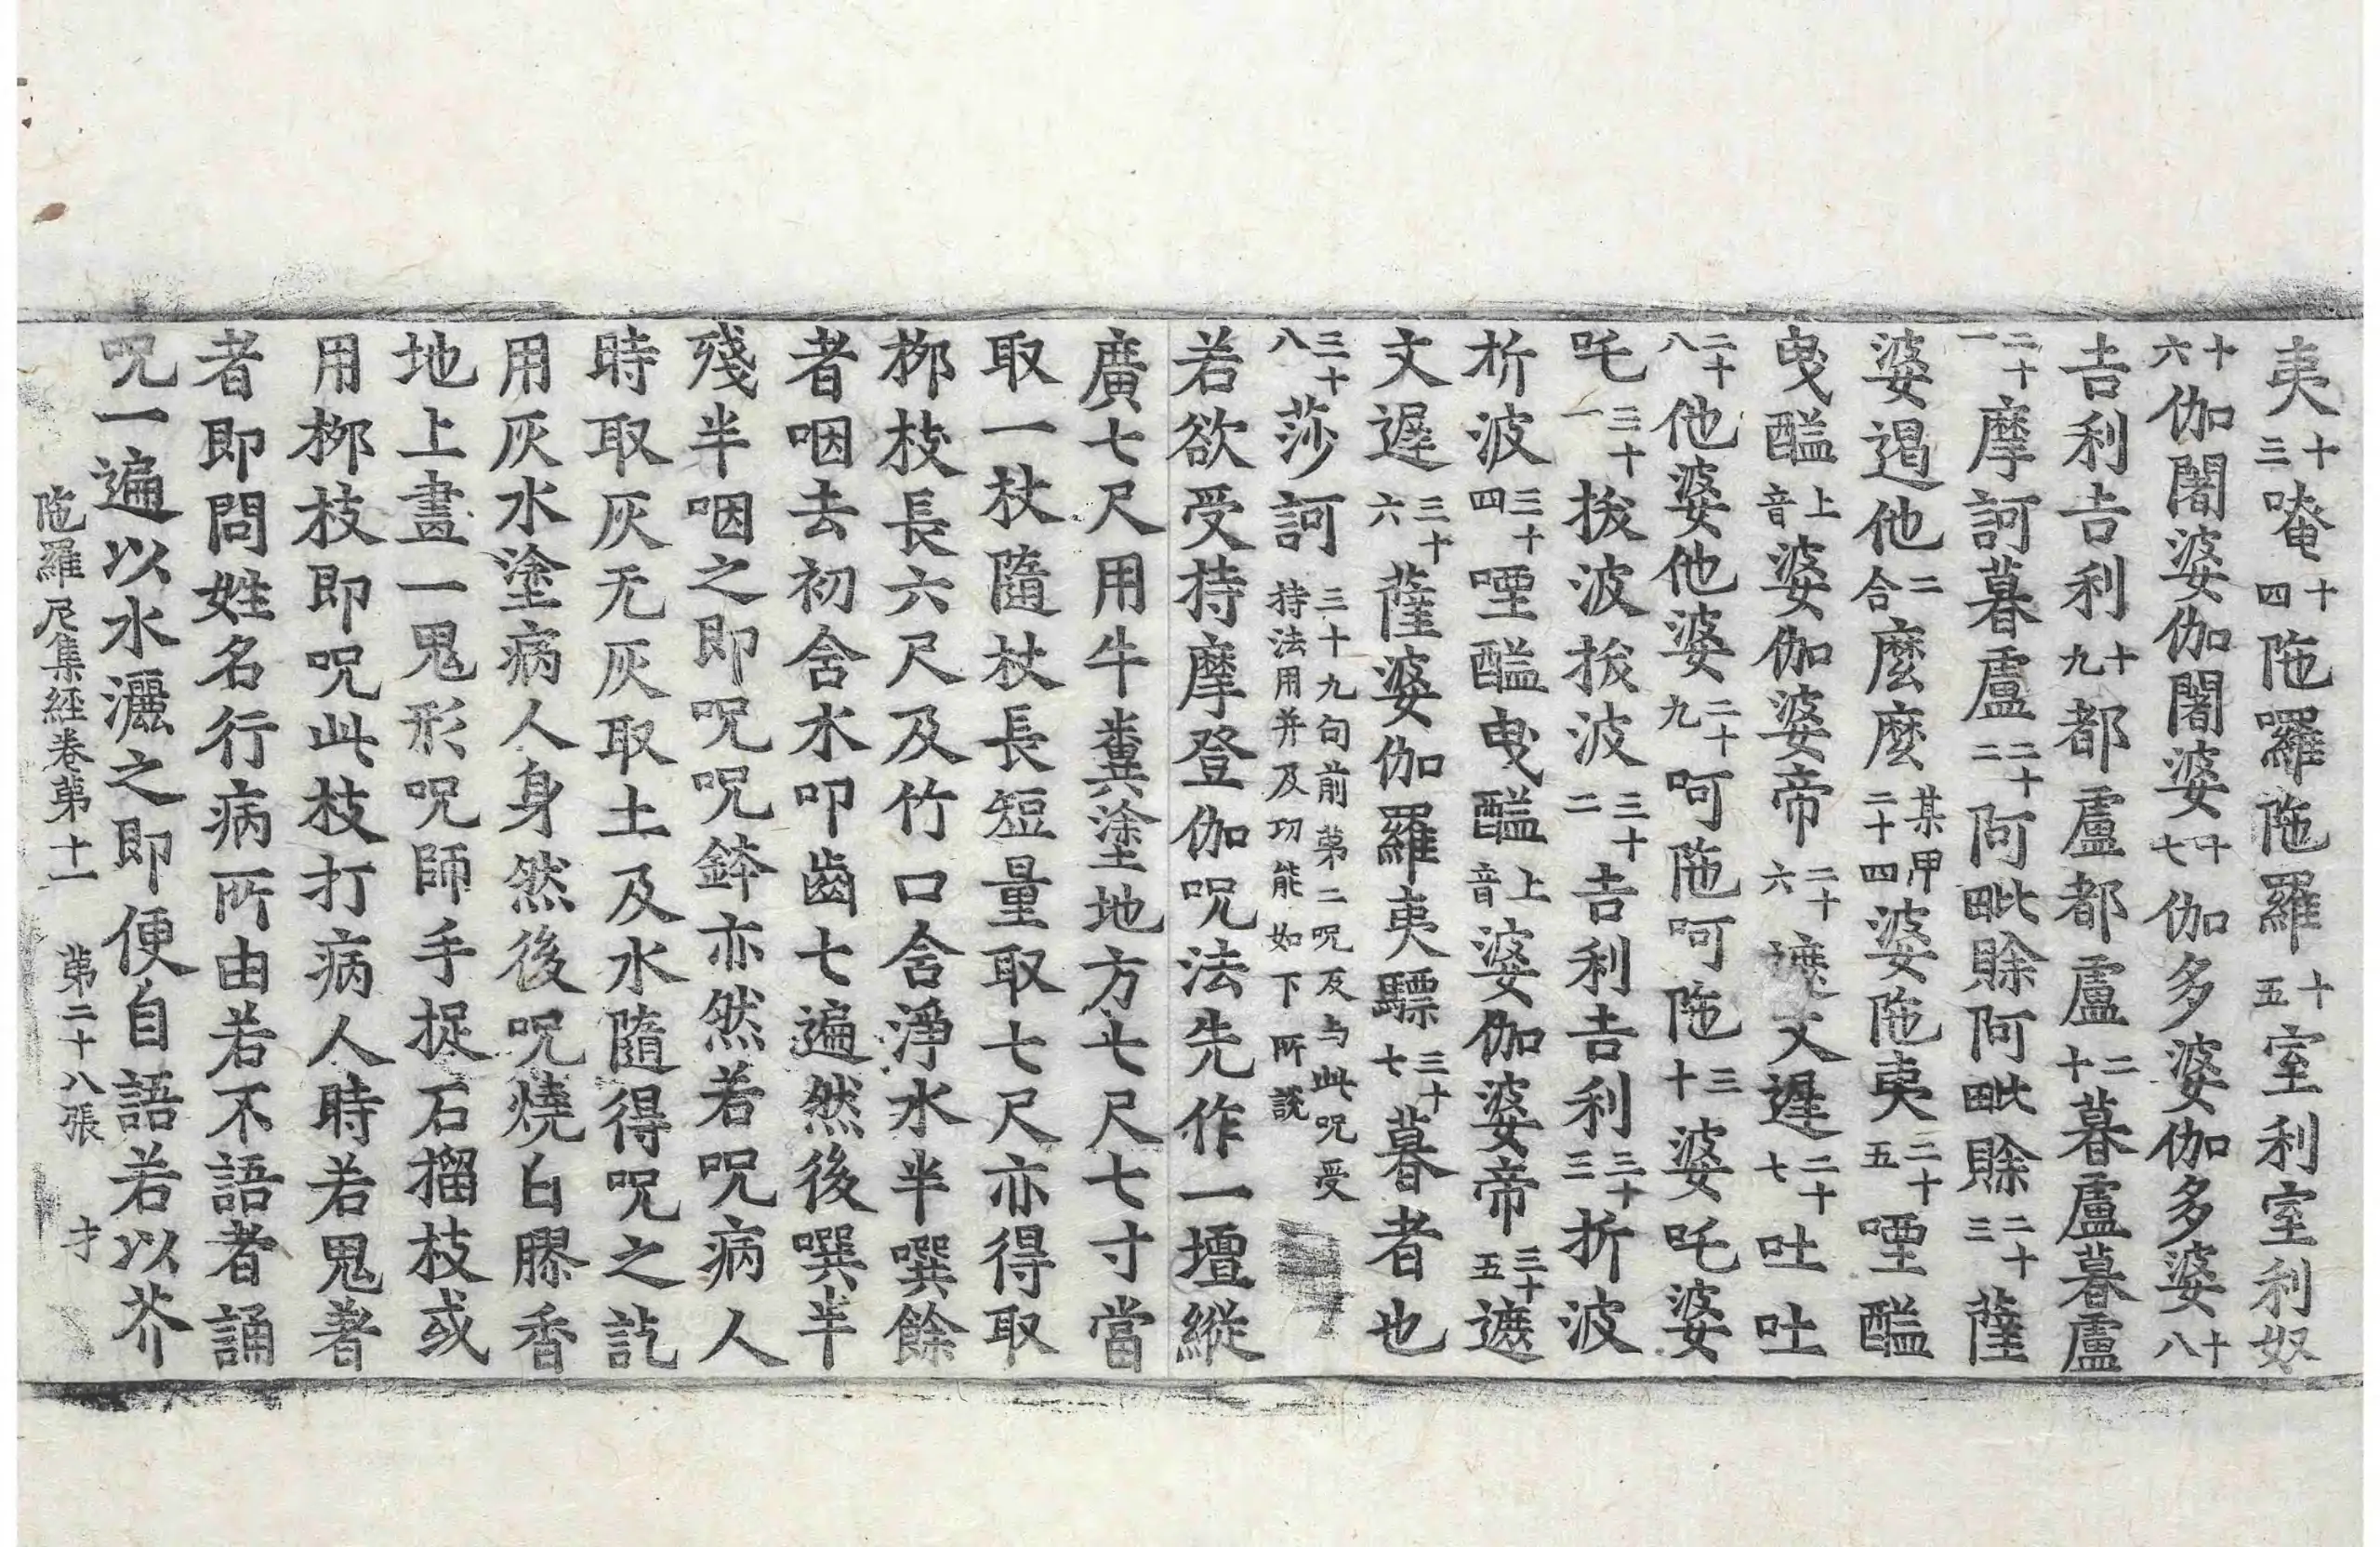 夷十三唵十四陁囉陁羅十五室利室利奴
十六伽闍婆伽闍婆十七伽多婆伽多婆十八
吉利吉利十九都盧都盧二十暮盧暮盧
二十一摩訶暮盧二十二阿毗賒阿毗賒二十三薩
婆遏他二合麼麼某甲二十四婆陁夷二十五㗌醯
曳醯上音婆伽婆帝二十六遮文遲二十七吐吐
二十八他婆他婆二十九呵陁呵陁三十婆吒婆
吒三十一拔波拔波三十二吉利吉利三十三折波
折波三十四㗌醯曳醯上音婆伽婆帝三十五遮
文遲三十六薩婆伽羅夷驃三十七暮者也
三十八莎訶三十九句前第二呪及与此呪受持法用并及功能如下所說
若欲受持摩登伽呪法先作一壇縱
廣七尺用牛糞塗地方七尺七寸當
取一杖隨杖長短量取七尺亦得取
桞枝長六尺及竹口含淨水半噀餘
者咽去初含水叩齒七遍然後噀半
殘半咽之即呪呪鉢亦然若呪病人
時取灰无灰取土及水隨得呪之訖
用灰水塗病人身然後呪燒白膠香
地上畫一鬼形呪師手捉石榴枝或
用桞枝即呪此枝打病人時若鬼著
者即問姓名行病所由若不語者誦
呪一遍以水灑之即便自語若以芥
陁羅尼集經卷第十一 第二十八張 才